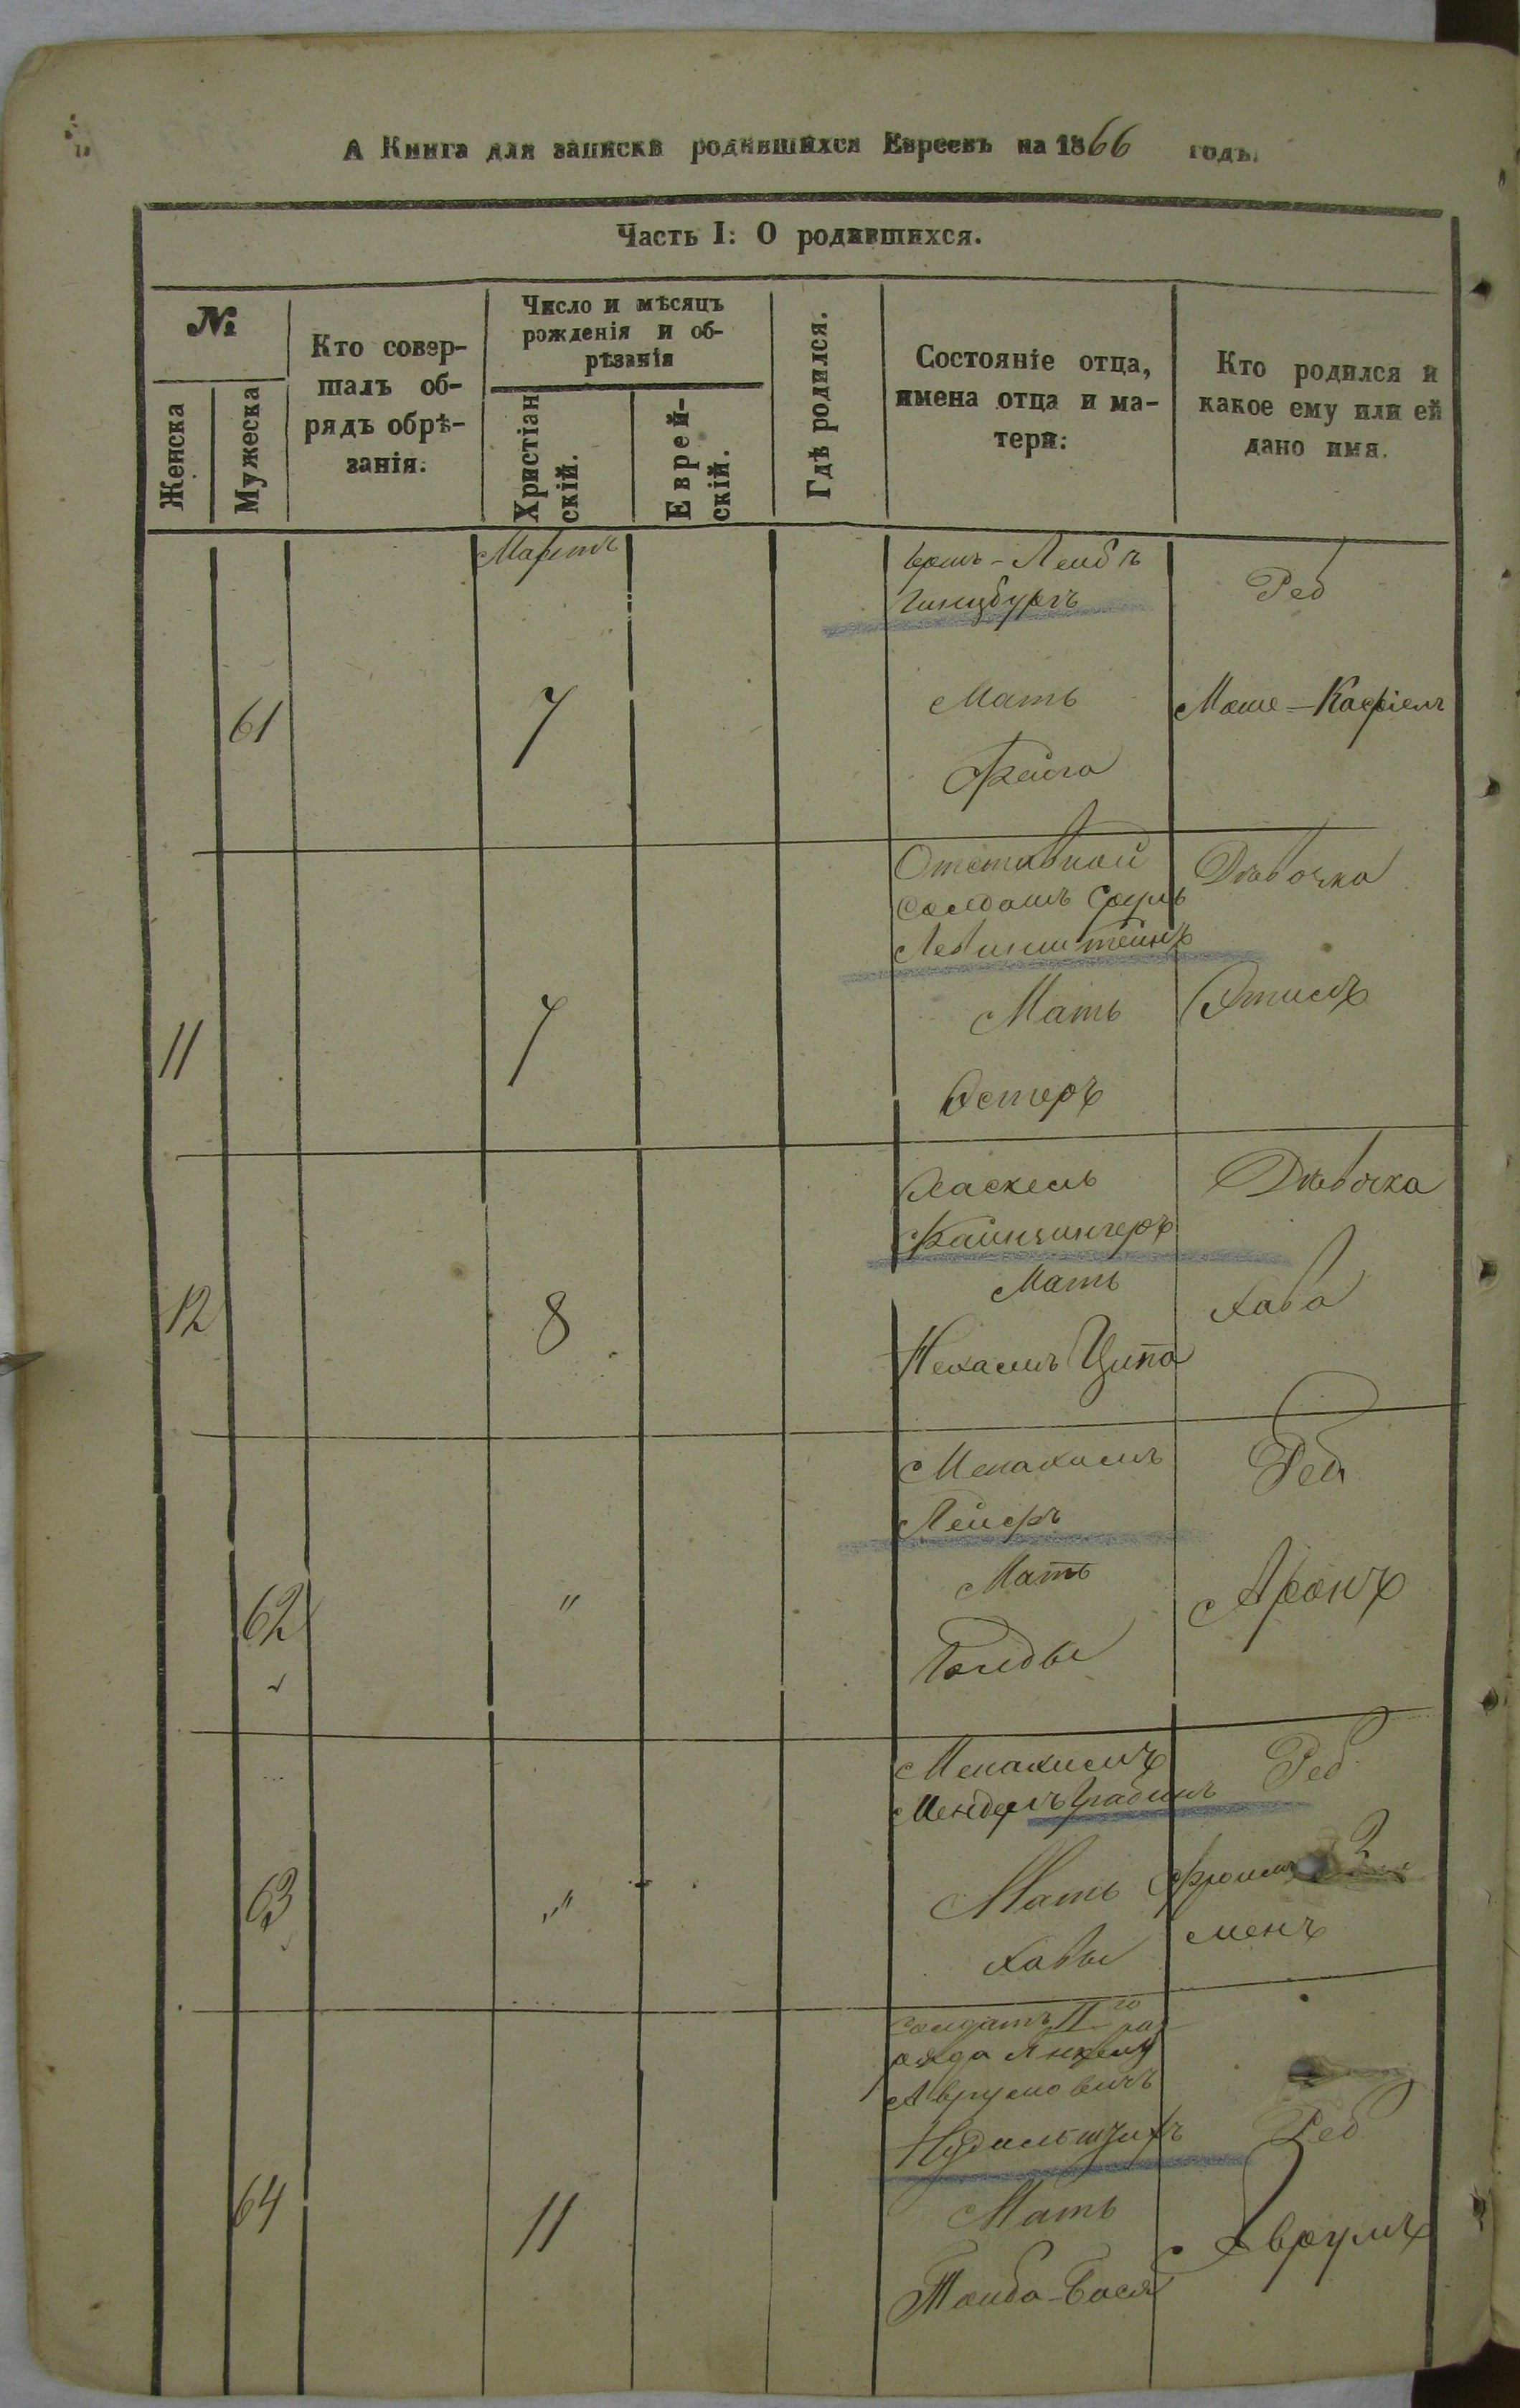 А Книга для записки родившихся Евреевъ на 1866 годъ.
Часть I: О родившихся.
№
Женска
Мужеска
Кто совер-
шалъ об-
рядъ обрѣ-
занія.
Число и мѣсяцъ
рожденія и об-
рѣзанія
Христіан
скій.
Еврей-
скій.
Гдѣ родился.
Состояніе отца,
имена отца и ма-
тери:
Кто родился и
какое ему или ей
дано имя.
Мартъ
61
7
Лейбъ
Гинцбургъ
Мать
Фейга
Реб
Моше-
11
7
Отставной
Солдатъ Сруль
Левинштейнъ
Мать
Эстеръ
Дѣвочка
12
8
Хаскель
Мать
Ципа
Дѣвочка
Хава
62
"
Менахимъ
Мать
Голды
Реб
Аронъ
63
"
Менахимъ
Мендель
Мать
Хавы
Реб
менъ
64
11
Солдатъ II го раз
ряда Янкель
Аврумовичъ
Мать
Тойба-Бася
Реб
Аврумъ